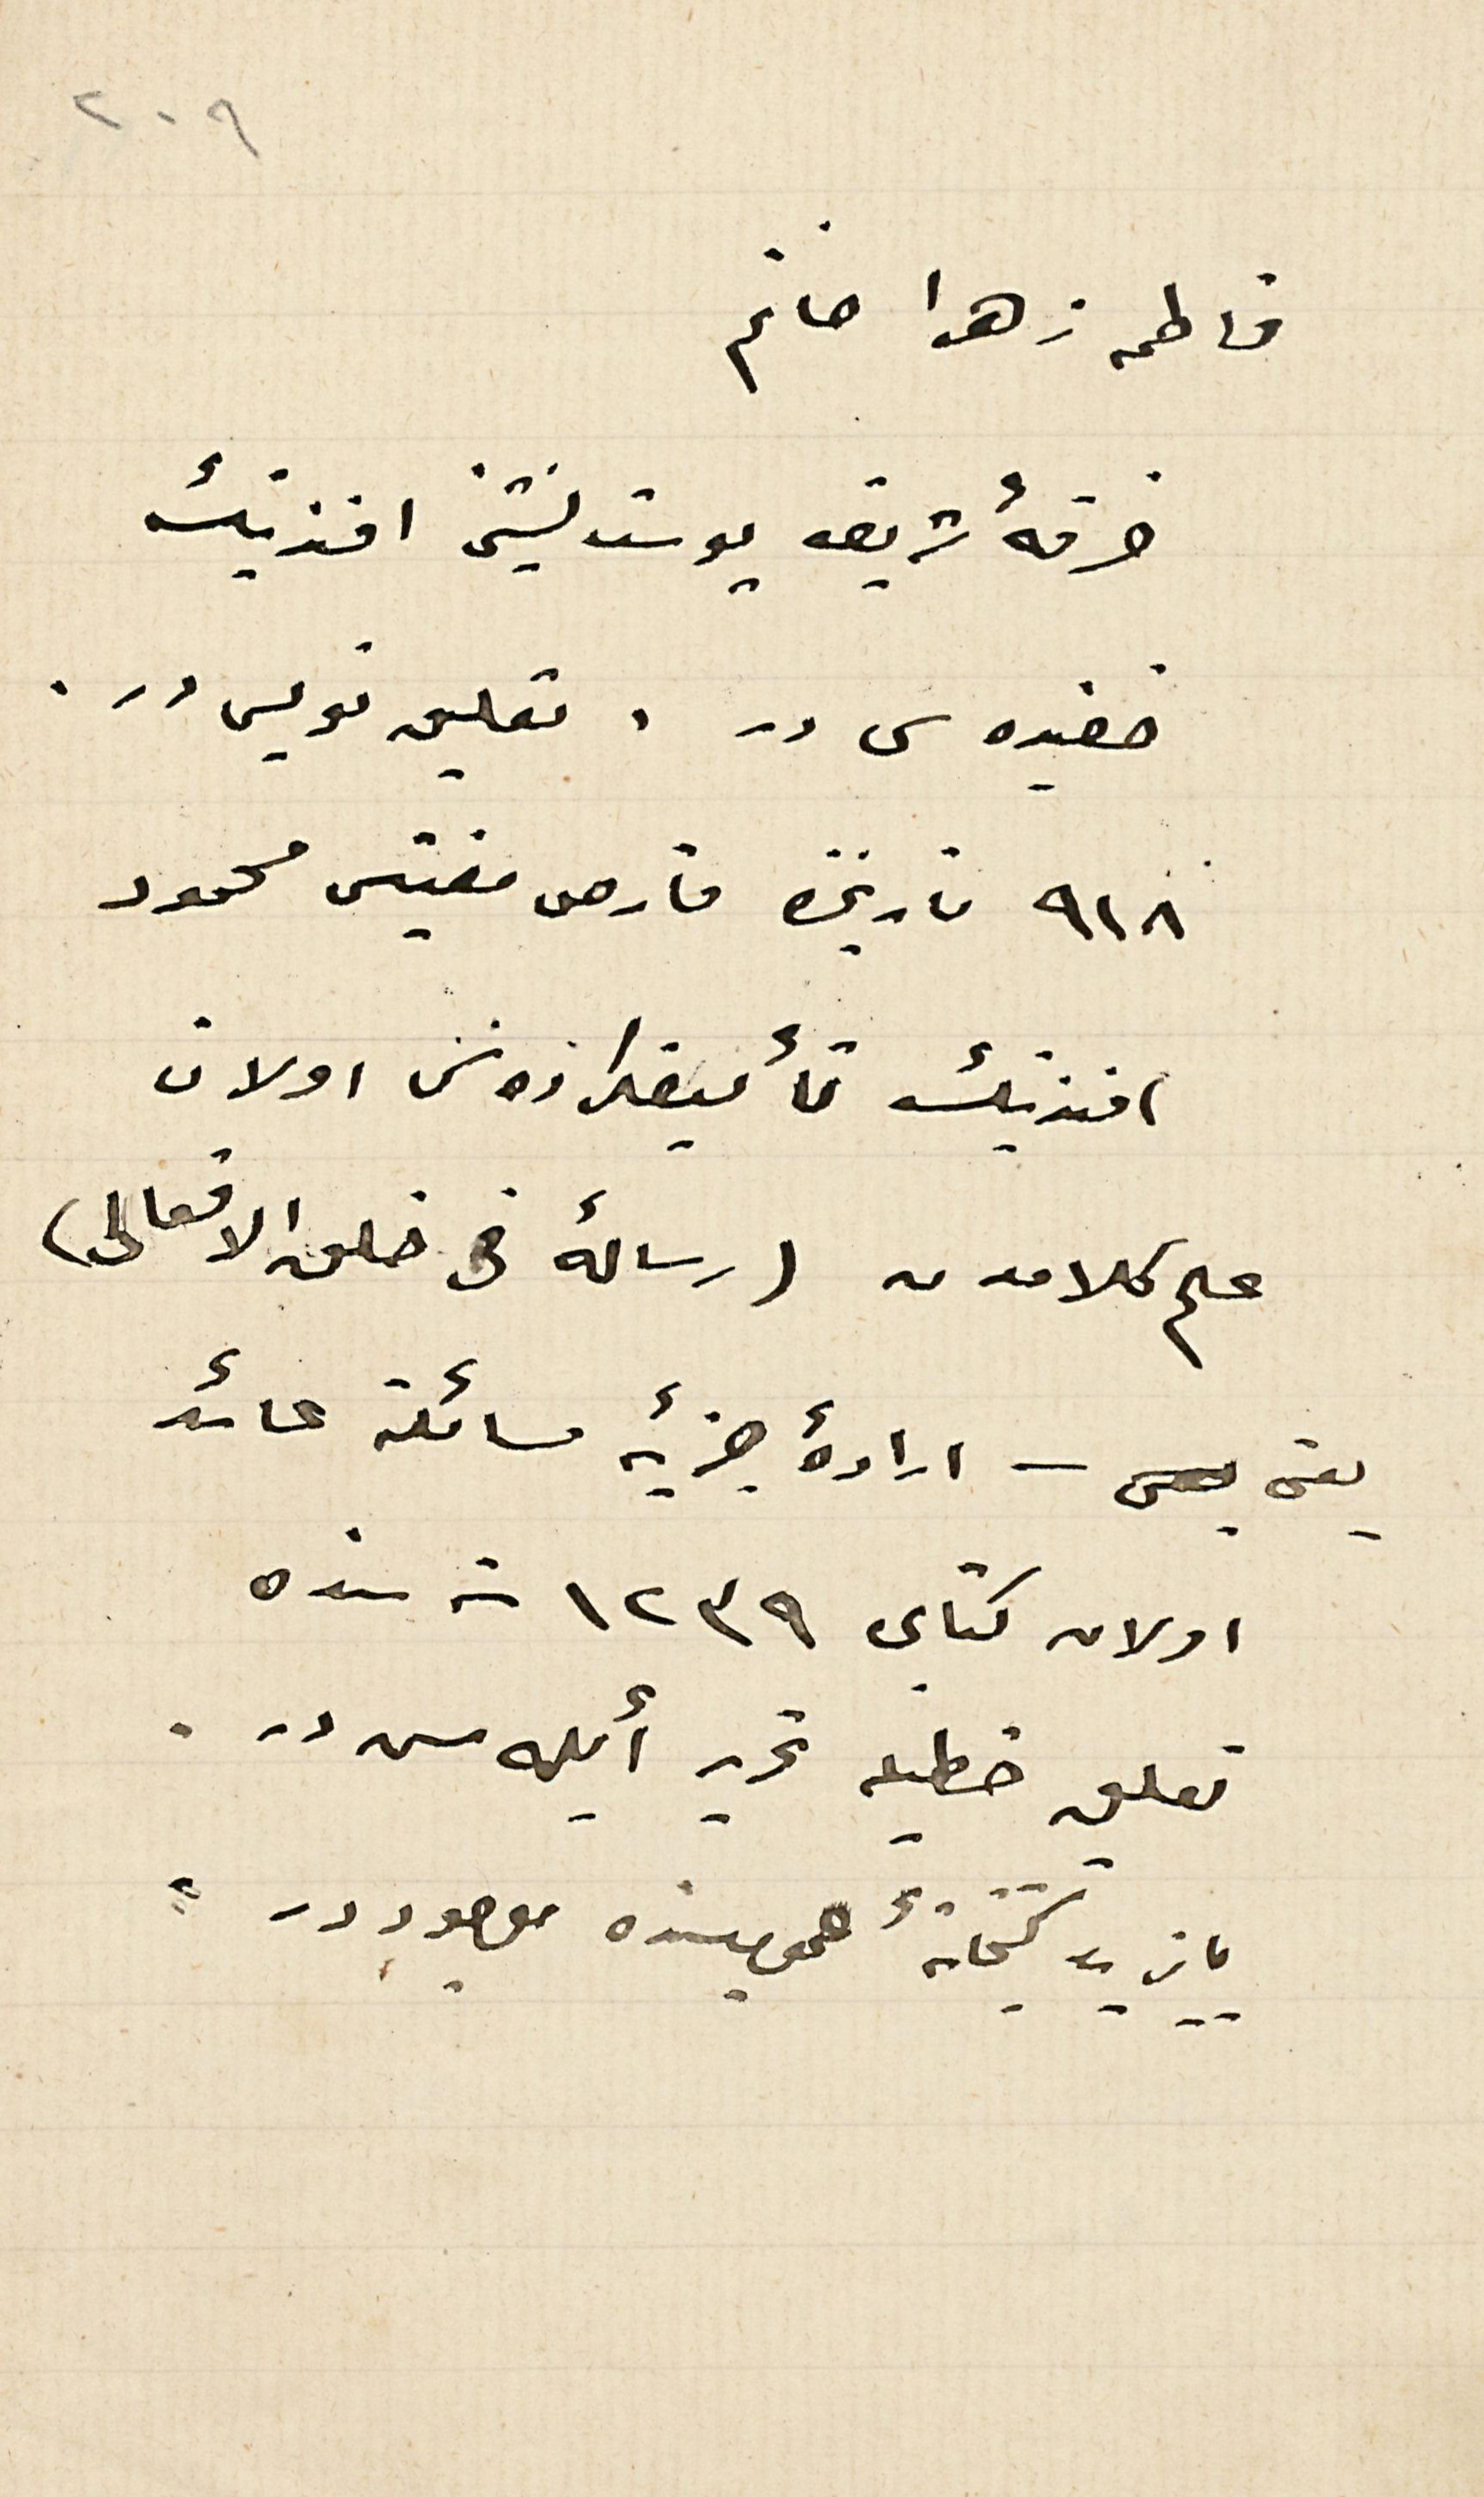 ٢٠٩
فاطمه زهرا خانم
خرقهٔ شریفه پوستنشینی افندینڭ
حفیده سی در ، تعلیق نویس در .
٩١٨ تاریخنده قارص مفتیسی محمود
افندینڭ تألیفکرده سی اولان
علم کلامدن (رسالهٔ فی خلق الافعالی)
یعنی — ارادهٔ جزئیه مسائلنه عائد
اولان کتابی ١٢٣٩ سنه سنده
تعلیق خطیله تحریر أیله مس در .
بایزید کتبخانهٔ عمومیسنده موجوددر